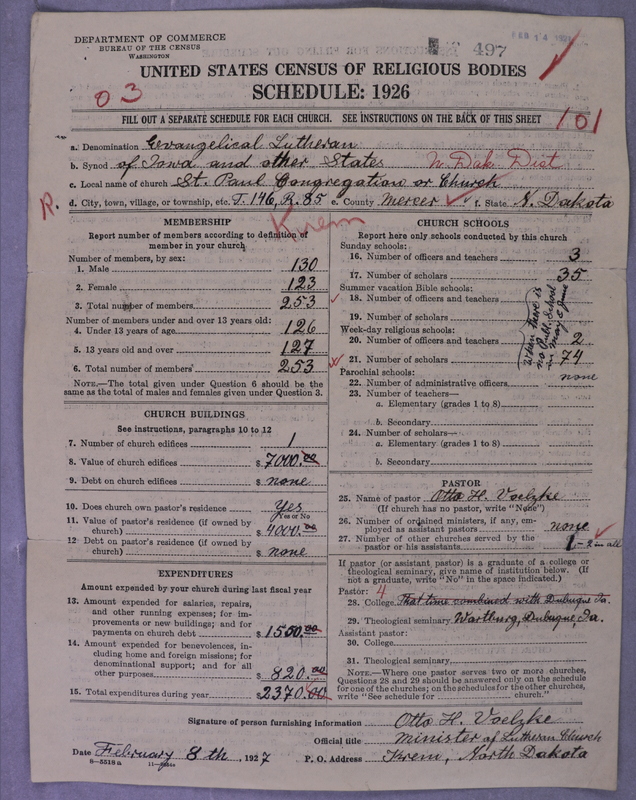 DEPARTMENT OF COMMERCE
BUREAU OF THE CENSUS
WASHINGTON
FEB 14 1927
497
UNITED STATES CENSUS OF RELIGIOUS BODIES
03
SCHEDULE: 1926
FILL OUT A SEPARATE SCHEDULE FOR EACH CHURCH. SEE INSTRUCTIONS ON THE BACK OF THIS SHEET
101
a. Denomination Evangelical Lutheran
b. Synod of Iowa and other States N. Dak. Dist
c. Local name of church St. Paul Congregation or Church
R. d. City, town, village, or township, etc. T. 146, R. 85 e. County Mercer f. State N. Dakota
Krem
MEMBERSHIP
Report number of members according to definition of
member in your church
Number of members, by sex:
1. Male 130
2. Female 123
3. Total number of members 253
Number of members under and over 13 years old:
4. Under 13 years of age 126
5. 13 years old and over 127
6. Total number of members 253
NOTE.—The total given under Question 6 should be the
same as the total of males and females given under Question 3.
CHURCH BUILDINGS
See instructions, paragraphs 10 to 12
7. Number of church edifices 1
8. Value of church edifices $ 7000.00
9. Debt on church edifices $ none
10. Does church own pastor's residence Yes
Yes or No
11. Value of pastor's residence (if owned by
church) $ 4000.00
12 Debt on pastor's residence (if owned by
church) $ none
EXPENDITURES
Amount expended by your church during last fiscal year
13. Amount expended for salaries, repairs,
and other running expenses; for im-
provements or new buildings; and for
payments on church debt $ 1550.00
14. Amount expended for benevolences, in-
cluding home and foreign missions; for
denominational support; and for all
other purposes $ 820.00
15. Total expenditures during year $ 2370.00
CHURCH SCHOOLS
Report here only schools conducted by this church
Sunday schools:
16. Number of officers and teachers 3
17. Number of scholars 35
Summer vacation Bible schools:
18. Number of officers and teachers
19. Number of scholars
Week-day religious schools:
20. Number of officers and teachers 2
21. Number of scholars 74
when there is
no Publ. School
in May & June
Parochial schools:
22. Number of administrative officers none
23. Number of teachers—
a. Elementary (grades 1 to 8)
b. Secondary
24. Number of scholars—
a. Elementary (grades 1 to 8)
b. Secondary
PASTOR
25. Name of pastor Otto H. Voelzke
(If church has no pastor, write "None")
26. Number of ordained ministers, if any, em-
ployed as assistant pastors none
27. Number of other churches served by the
pastor or his assistants 1 - 2 in all
If pastor (or assistant pastor) is a graduate of a college or
theological seminary, give name of institution below. (If
not a graduate, write "No" in the space indicated.)
Pastor: 4
28. College That time combined with Dubuque Ia.
29. Theological seminary Wartburg, Dubuque, Ia.
Assistant pastor:
30. College
31. Theological seminary
NOTE.—Where one pastor serves two or more churches,
Questions 28 and 29 should be answered only on the schedule
for one of the churches; on the schedules for the other churches,
write "See schedule for church."
Signature of person furnishing information Otto H. Voelzke
Official title Minister of Lutheran Church
Date February 8th, 1927 P. O. Address Krem, North Dakota
8—5518 a